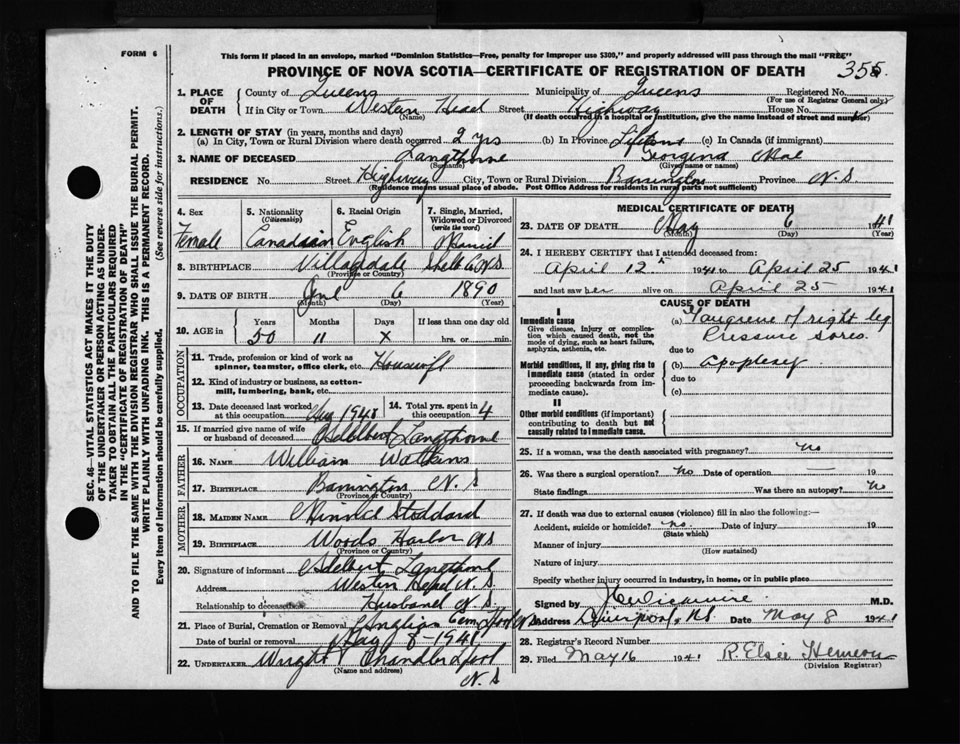 FORM 6
This form if placed in an envelope, marked "Dominion Statistics—Free, penalty for improper use $300," and properly addressed will pass through the mail "FREE"
PROVINCE OF NOVA SCOTIA—CERTIFICATE OF REGISTRATION OF DEATH 355
1. PLACE OF DEATH County of Queens Municipality of Queens Registered No.
(For use of Registrar General only)
If in City or Town Western Head Street Highway House No.
(Name) (If death occurred in a hospital or institution, give the name instead of street and number)
2. LENGTH OF STAY (in years, months and days)
(a) In City, Town or Rural Division where death occurred 2 yrs (b) In Province Lifetime (c) In Canada (if immigrant)
3. NAME OF DECEASED Langthorne Georgina
(Surname) (Given name or names)
RESIDENCE No Street Highway City, Town or Rural Division Barrington Province N.S
(Residence means usual place of abode. Post Office Address for residents in rural parts not sufficient)
4. Sex 5. Nationality (Citizenship) 6. Racial Origin 7. Single, Married, Widowed or Divorced (write the word)
Female Canadian English Married
8. BIRTHPLACE Villagedale Shelb Co N.S
(Province or Country)
9. DATE OF BIRTH June 6 1890
(Month) (Day) (Year)
10. AGE in Years Months Days If less than one day old
50 11 x hrs. or min.
OCCUPATION
11. Trade, profession or kind of work as spinner, teamster, office clerk, etc. Housewife
12. Kind of industry or business, as cotton-mill, lumbering, bank, etc.
13. Date deceased last worked at this occupation 1940 14. Total yrs. spent in this occupation 4
15. If married give name of wife or husband of deceased Adelbert Langthorne
FATHER
16. NAME William Watkins
17. BIRTHPLACE Barrington N.S
(Province or Country)
MOTHER
18. MAIDEN NAME Stoddard
19. BIRTHPLACE Woods Harbor N.S
(Province or Country)
20. Signature of informant Adelbert Langthorne
Address Western Head N.S.
Relationship to deceased Husband N.S.
21. Place of Burial, Cremation or Removal Anglican Cem
Date of burial or removal May 8-1941
22. UNDERTAKER Wright Chandler Lpool
(Name and address) N.S
MEDICAL CERTIFICATE OF DEATH
23. DATE OF DEATH May 6 1941
(Month) (Day) (Year)
24. I HEREBY CERTIFY that I attended deceased from:
April 12 1941 to April 25 1941
and last saw her alive on April 25 1941
CAUSE OF DEATH
I
Immediate cause (a) Gangrene of right leg
Give disease, injury or complication which caused death, not the mode of dying, such as heart failure, asphyxia, asthenia, etc. Pressure sores.
due to
Morbid conditions, if any, giving rise to immediate cause (stated in order proceeding backwards from immediate cause). (b) Apoplexy
due to
(c)
II
Other morbid conditions (if important) contributing to death but not causally related to immediate cause.
25. If a woman, was the death associated with pregnancy? no
26. Was there a surgical operation? no Date of operation — 19
State findings Was there an autopsy? no
27. If death was due to external causes (violence) fill in also the following:—
Accident, suicide or homicide? no. Date of injury 19
(State which)
Manner of injury
(How sustained)
Nature of injury
Specify whether injury occurred in industry, in home, or in public place
Signed by M.D.
Address Liverpool, N.S. Date May 8 1941
28. Registrar's Record Number
29. Filed May 16 1941 R. Elsie Hemeon
(Division Registrar)
SEC. 46—VITAL STATISTICS ACT MAKES IT THE DUTY
OF THE UNDERTAKER OR PERSON ACTING AS UNDER-
TAKER TO OBTAIN ALL THE PARTICULARS REQUIRED
IN THE "CERTIFICATE OF REGISTRATION OF DEATH"
AND TO FILE THE SAME WITH THE DIVISION REGISTRAR WHO SHALL ISSUE THE BURIAL PERMIT.
WRITE PLAINLY WITH UNFADING INK. THIS IS A PERMANENT RECORD.
Every item of information should be carefully supplied. (See reverse side for instructions.)